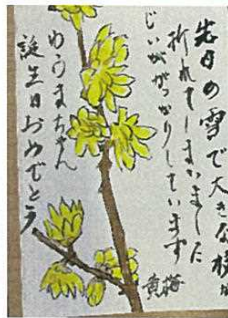 先日の雪で大きな枝
折れてしまいました
じいががっかりしています
黄梅
ゆうまちゃん
誕生日おめでとう